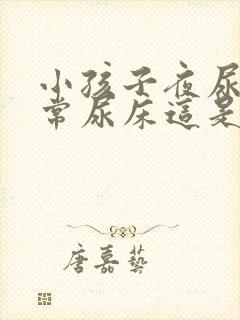 小孩子夜尿
常尿床這是
唐嘉藝